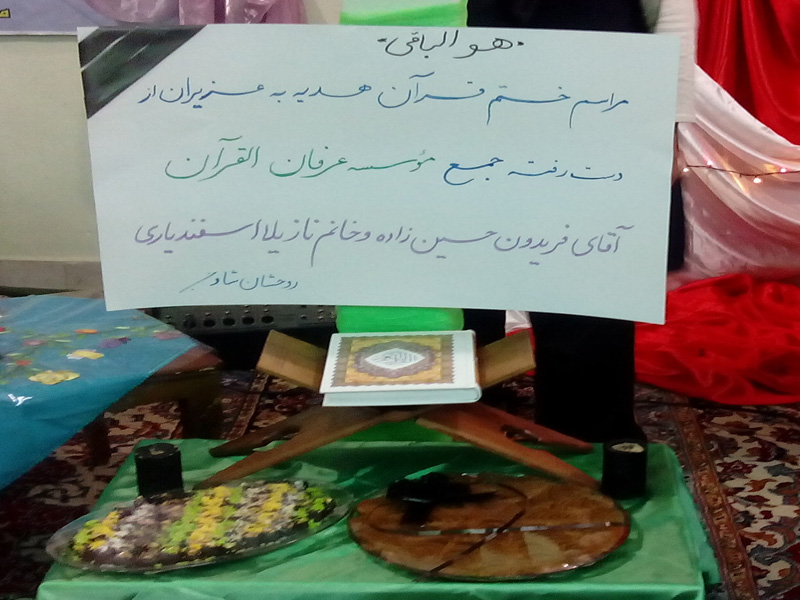 هو الباقی
مراسم ختم قرآن هدیه به عزیزان از
دست رفته جمع مؤسسه عرفان القرآن
آقای فریدون حسین زاده و خانم نازیلا اسفندیاری
روحشان شاد